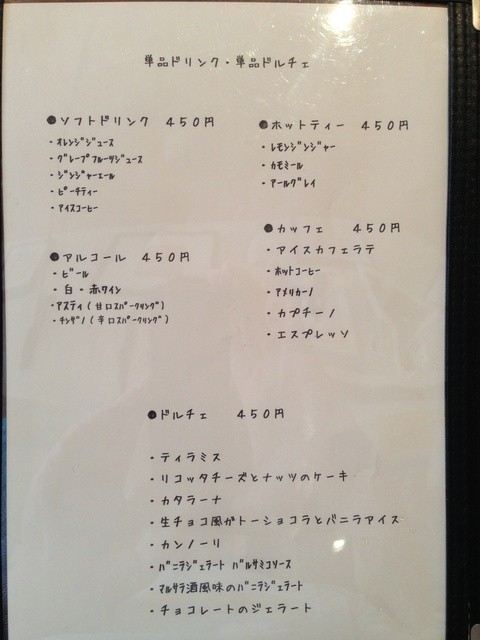 単品ドリンク・単品ドルチェ
●ソフトドリンク 450円
・ｵﾚﾝｼﾞｼﾞｭｰｽ
・ｸﾞﾚｰﾌﾟﾌﾙｰﾂｼﾞｭｰｽ
・ｼﾞﾝｼﾞｬｰｴｰﾙ
・ﾋﾟｰﾁﾃｨｰ
・ｱｲｽｺｰﾋｰ
●ホットティー 450円
・ﾚﾓﾝｼﾞﾝｼﾞｬｰ
・ｶﾓﾐｰﾙ
・ｱｰﾙｸﾞﾚｲ
●アルコール 450円
・ﾋﾞｰﾙ
・白・赤ﾜｲﾝ
・ｱｽﾃｨ(甘口ｽﾊﾟｰｸﾘﾝｸﾞ)
・ﾁﾝｻﾞﾉ(辛口ｽﾊﾟｰｸﾘﾝｸﾞ)
●カッフェ 450円
・アイスカフェラテ
・ﾎｯﾄｺｰﾋｰ
・ｱﾒﾘｶｰﾉ
・カプチーノ
・エスプレッソ
●ドルチェ 450円
・ティラミス
・リコッタチーズとナッツのケーキ
・カタラーナ
・生チョコ風ガトーショコラとバニラアイス
・カンノーリ
・ﾊﾞﾆﾗｼﾞｪﾗｰﾄ ﾊﾞﾙｻﾐｺｿｰｽ
・ﾏﾙｻﾗ酒風味のﾊﾞﾆﾗｼﾞｪﾗｰﾄ
・チョコレートのジェラート